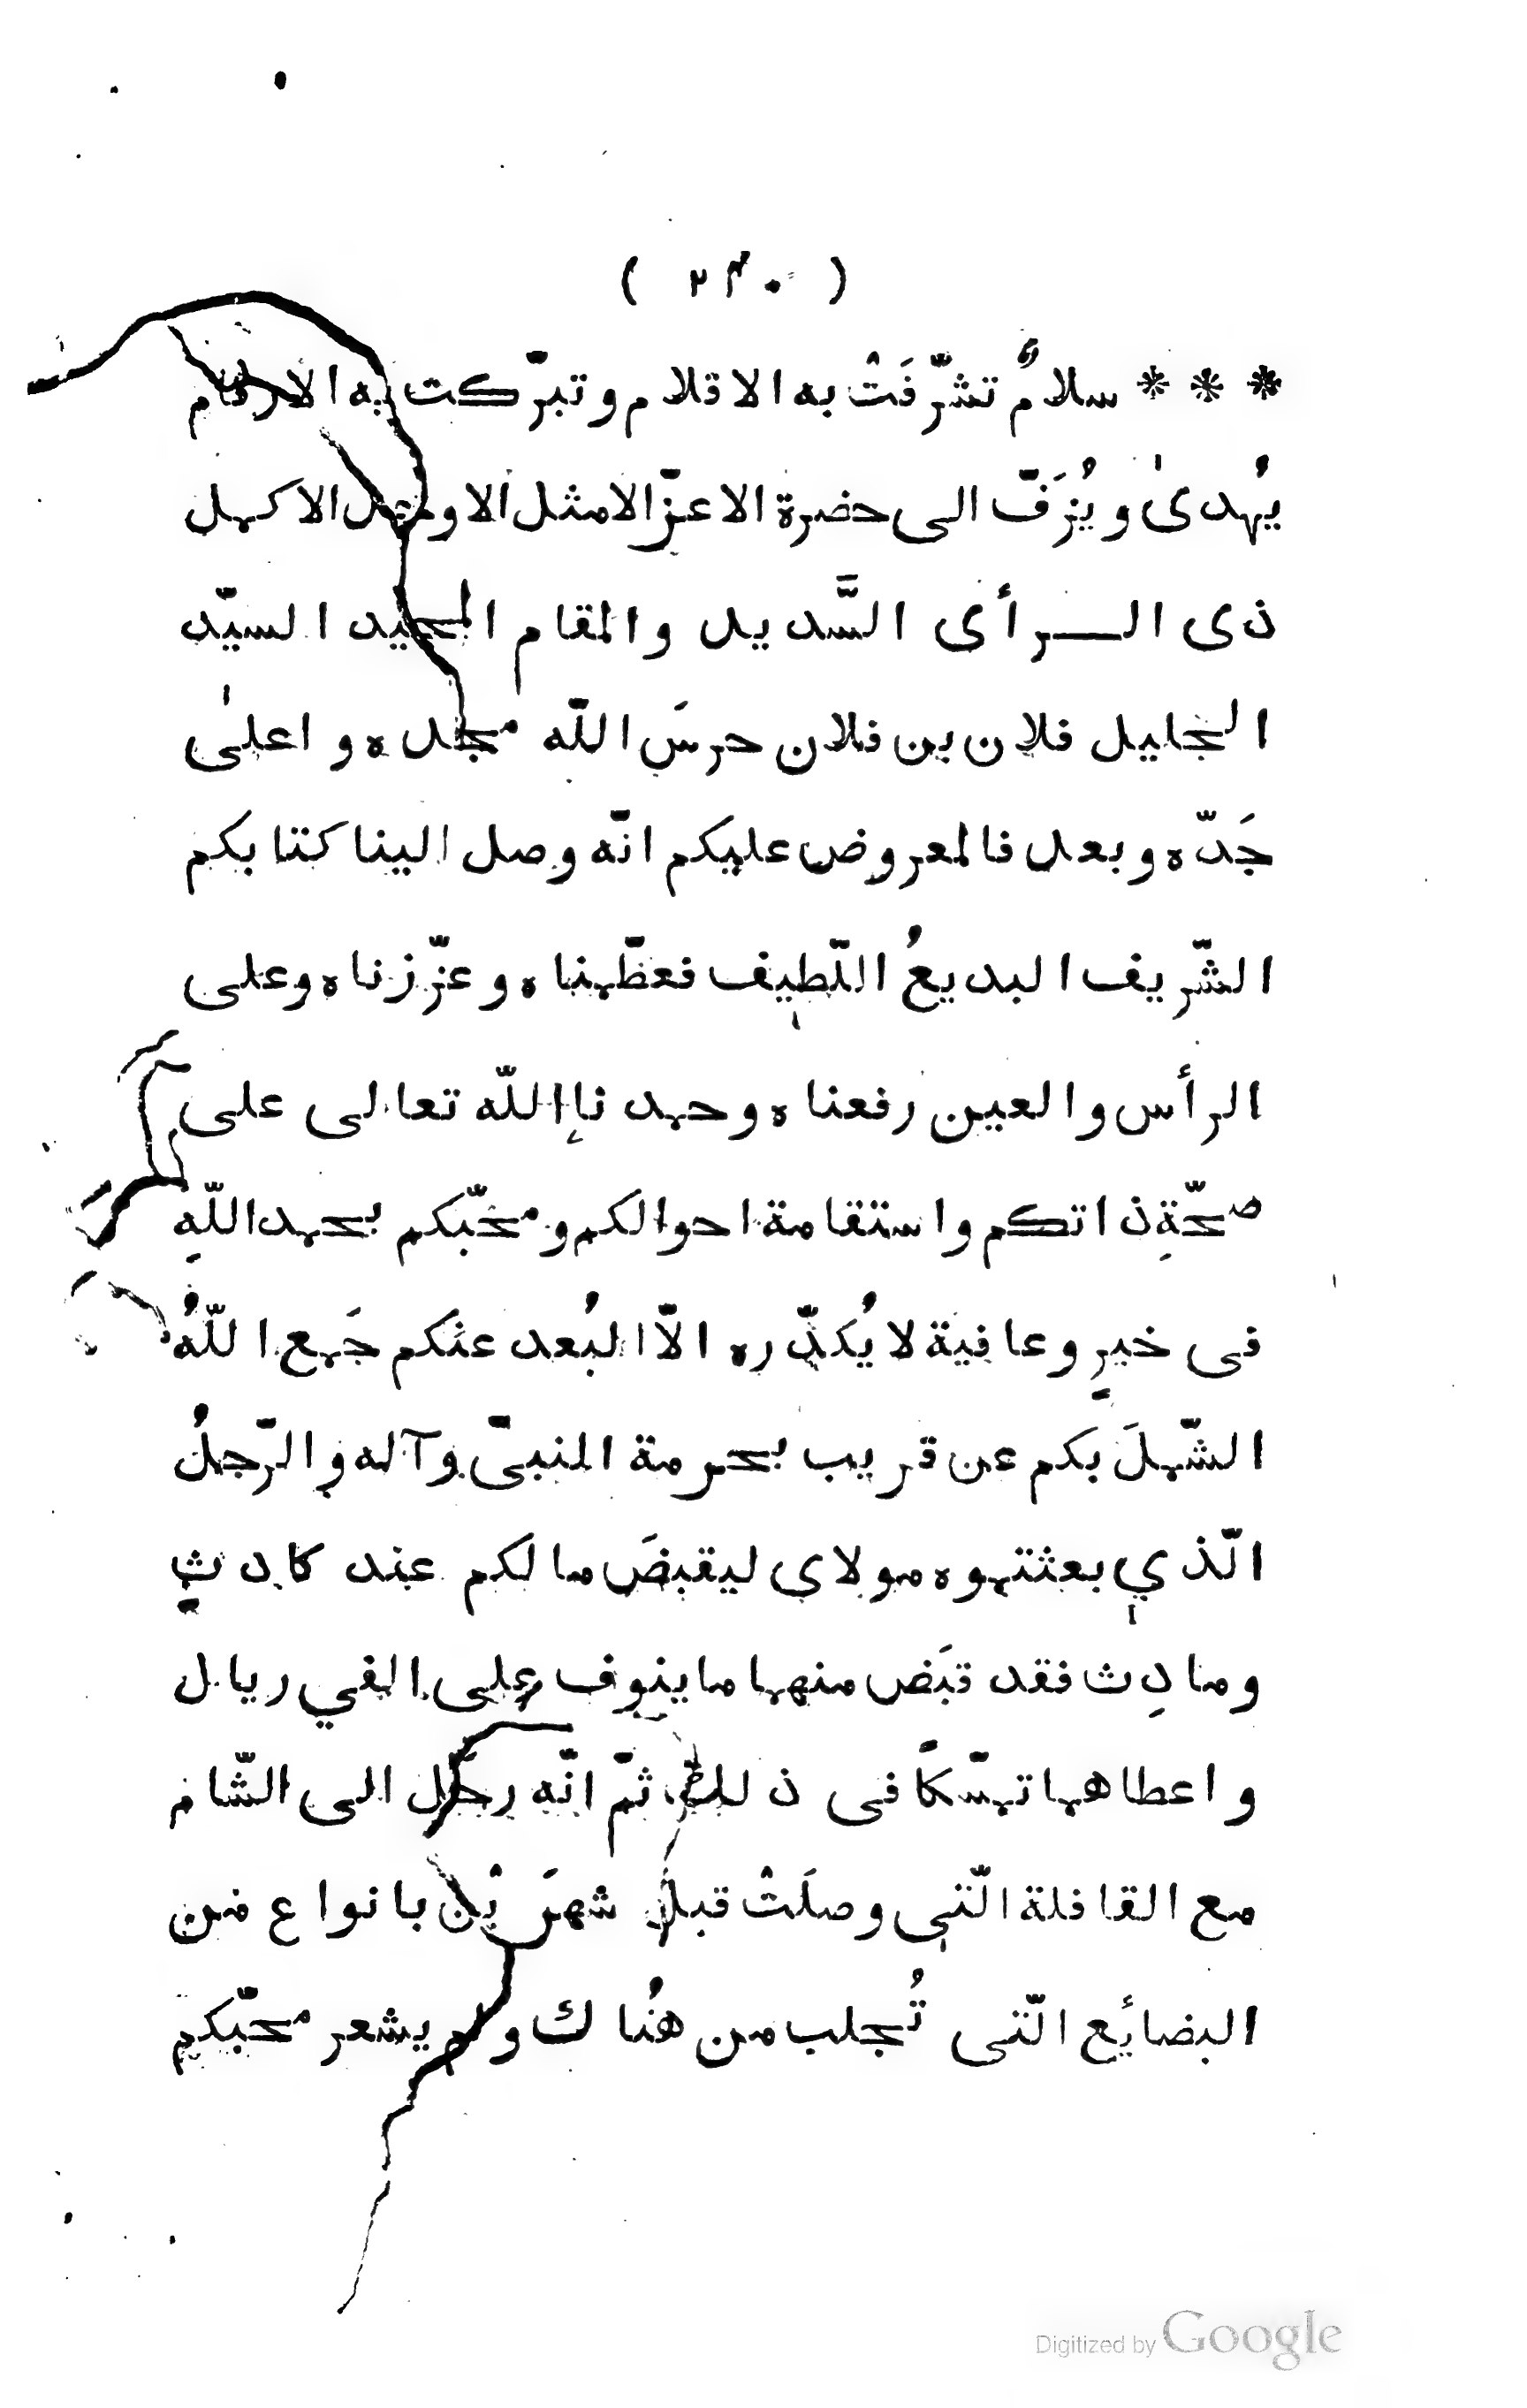 ( ٢٣٠ )
* * * سلامٌ تشرّفَتْ به الاقلام وتبرّكت به الارقام
يُهدىٰ ويُزَفّ الى حضرة الاعزّ الامثل الاوحد الاكمل
ذى الــرأى السَّديد والمقام المجيد السيّد
الجليل فلان بن فلان حرسَ اللّه مجده واعلىٰ
جَدّه وبعد فالمعروض عليكم انّه وصل الينا كتابكم
الشّريف البديعُ اللّطيف فعظّمناه وعزّزناه وعلى
الرأس والعين رفعناه وحمدنا اللّه تعالى على
صحّةِ ذاتكم واستقامة احوالكم ومحبّكم بحمد اللّهِ
فى خيرٍ وعافية لا يُكدّره الّا البُعد عنكم جَمع اللّهُ
الشّملَ بكم عن قريب بحرمة النبىّ وآله والرّجلُ
الّذي بعثتموه مولاى ليقبضَ ما لكم عند كادِثٍ
ومادِث فقد قبَض منهما ما ينوف على الفي ريال
واعطاهما تمسّكًا فى ذلك ثمّ انّه رحَل الى الشّام
مع القافلة الّتى وصلَتْ قبل شهرَيْن بانواع من
البضائع الّتى تُجلب من هُناك ولم يشعر محبّكم
Digitized by Google